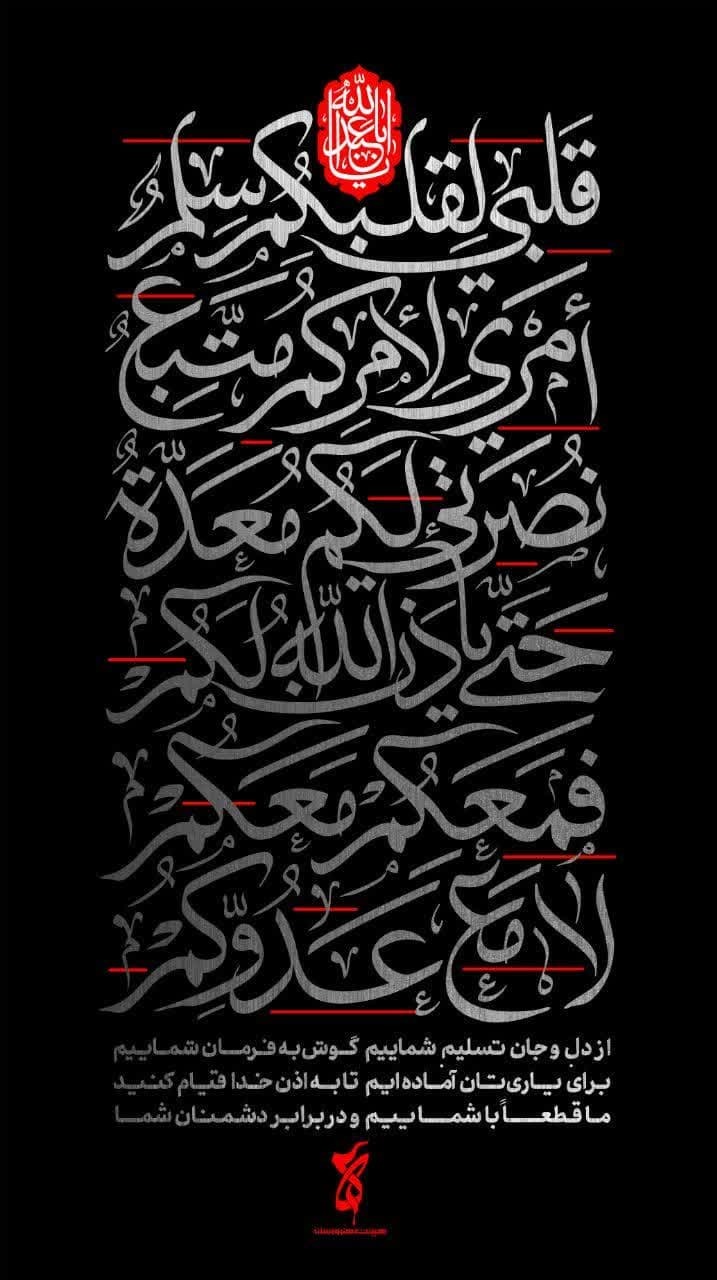 یا اباعبدالله
قَلبی لِقَلبِکُم سِلمٌ
أمری لِأمرِکُم مُتَّبِعٌ
نُصرَتی لَکُم مُعَدَّةٌ
حَتّی یَأذَنَ اللّهُ لَکُم
فَمَعَکُم مَعَکُم
لا مَعَ عَدُوِّکُم
از دل و جان تسلیم شماییم گوش به فرمان شماییم
برای یاری‌تان آماده‌ایم تا به اذن خدا قیام کنید
ما قطعاً با شماییم و در برابر دشمنان شما